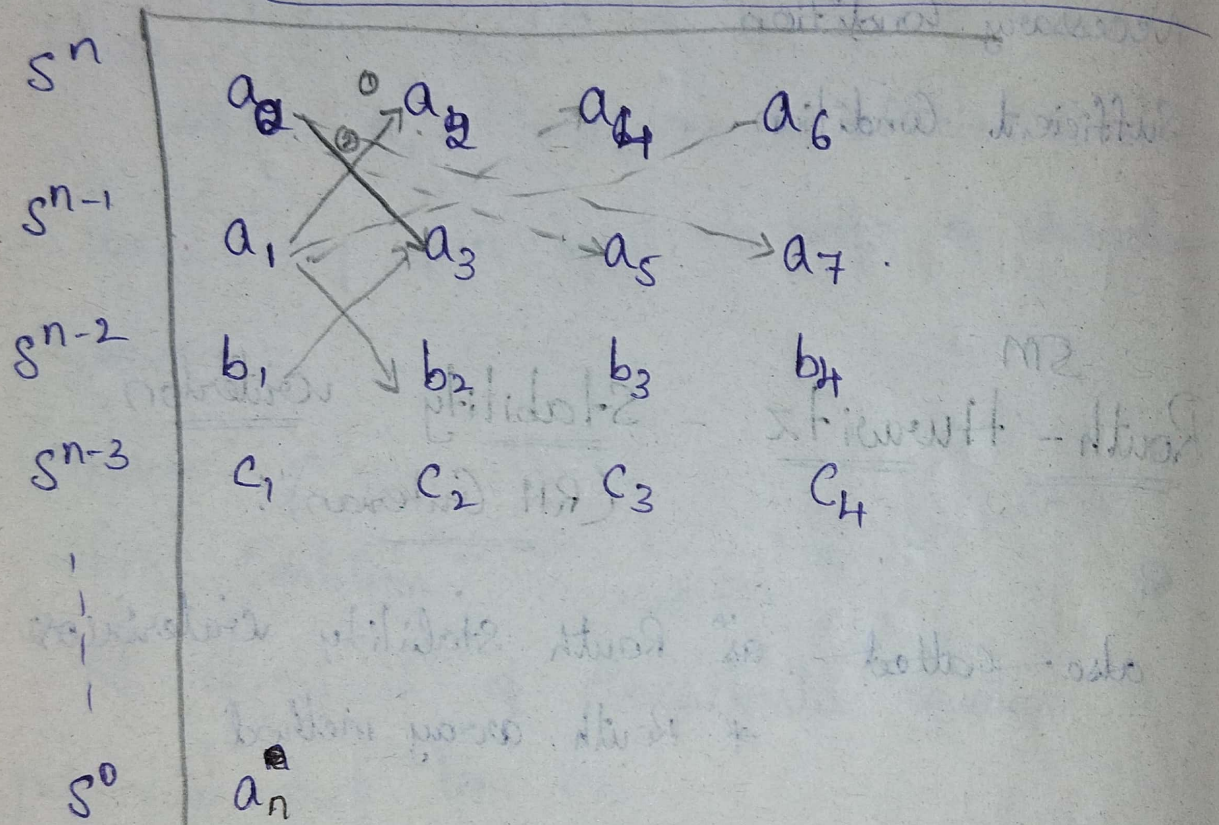 sⁿ a₀ ① a₂ a₄ a₆
②
sⁿ⁻¹ a₁ a₃ a₅ a₇ .
sⁿ⁻² b₁ b₂ b₃ b₄
sⁿ⁻³ c₁ c₂ c₃ c₄
s⁰ aₙ